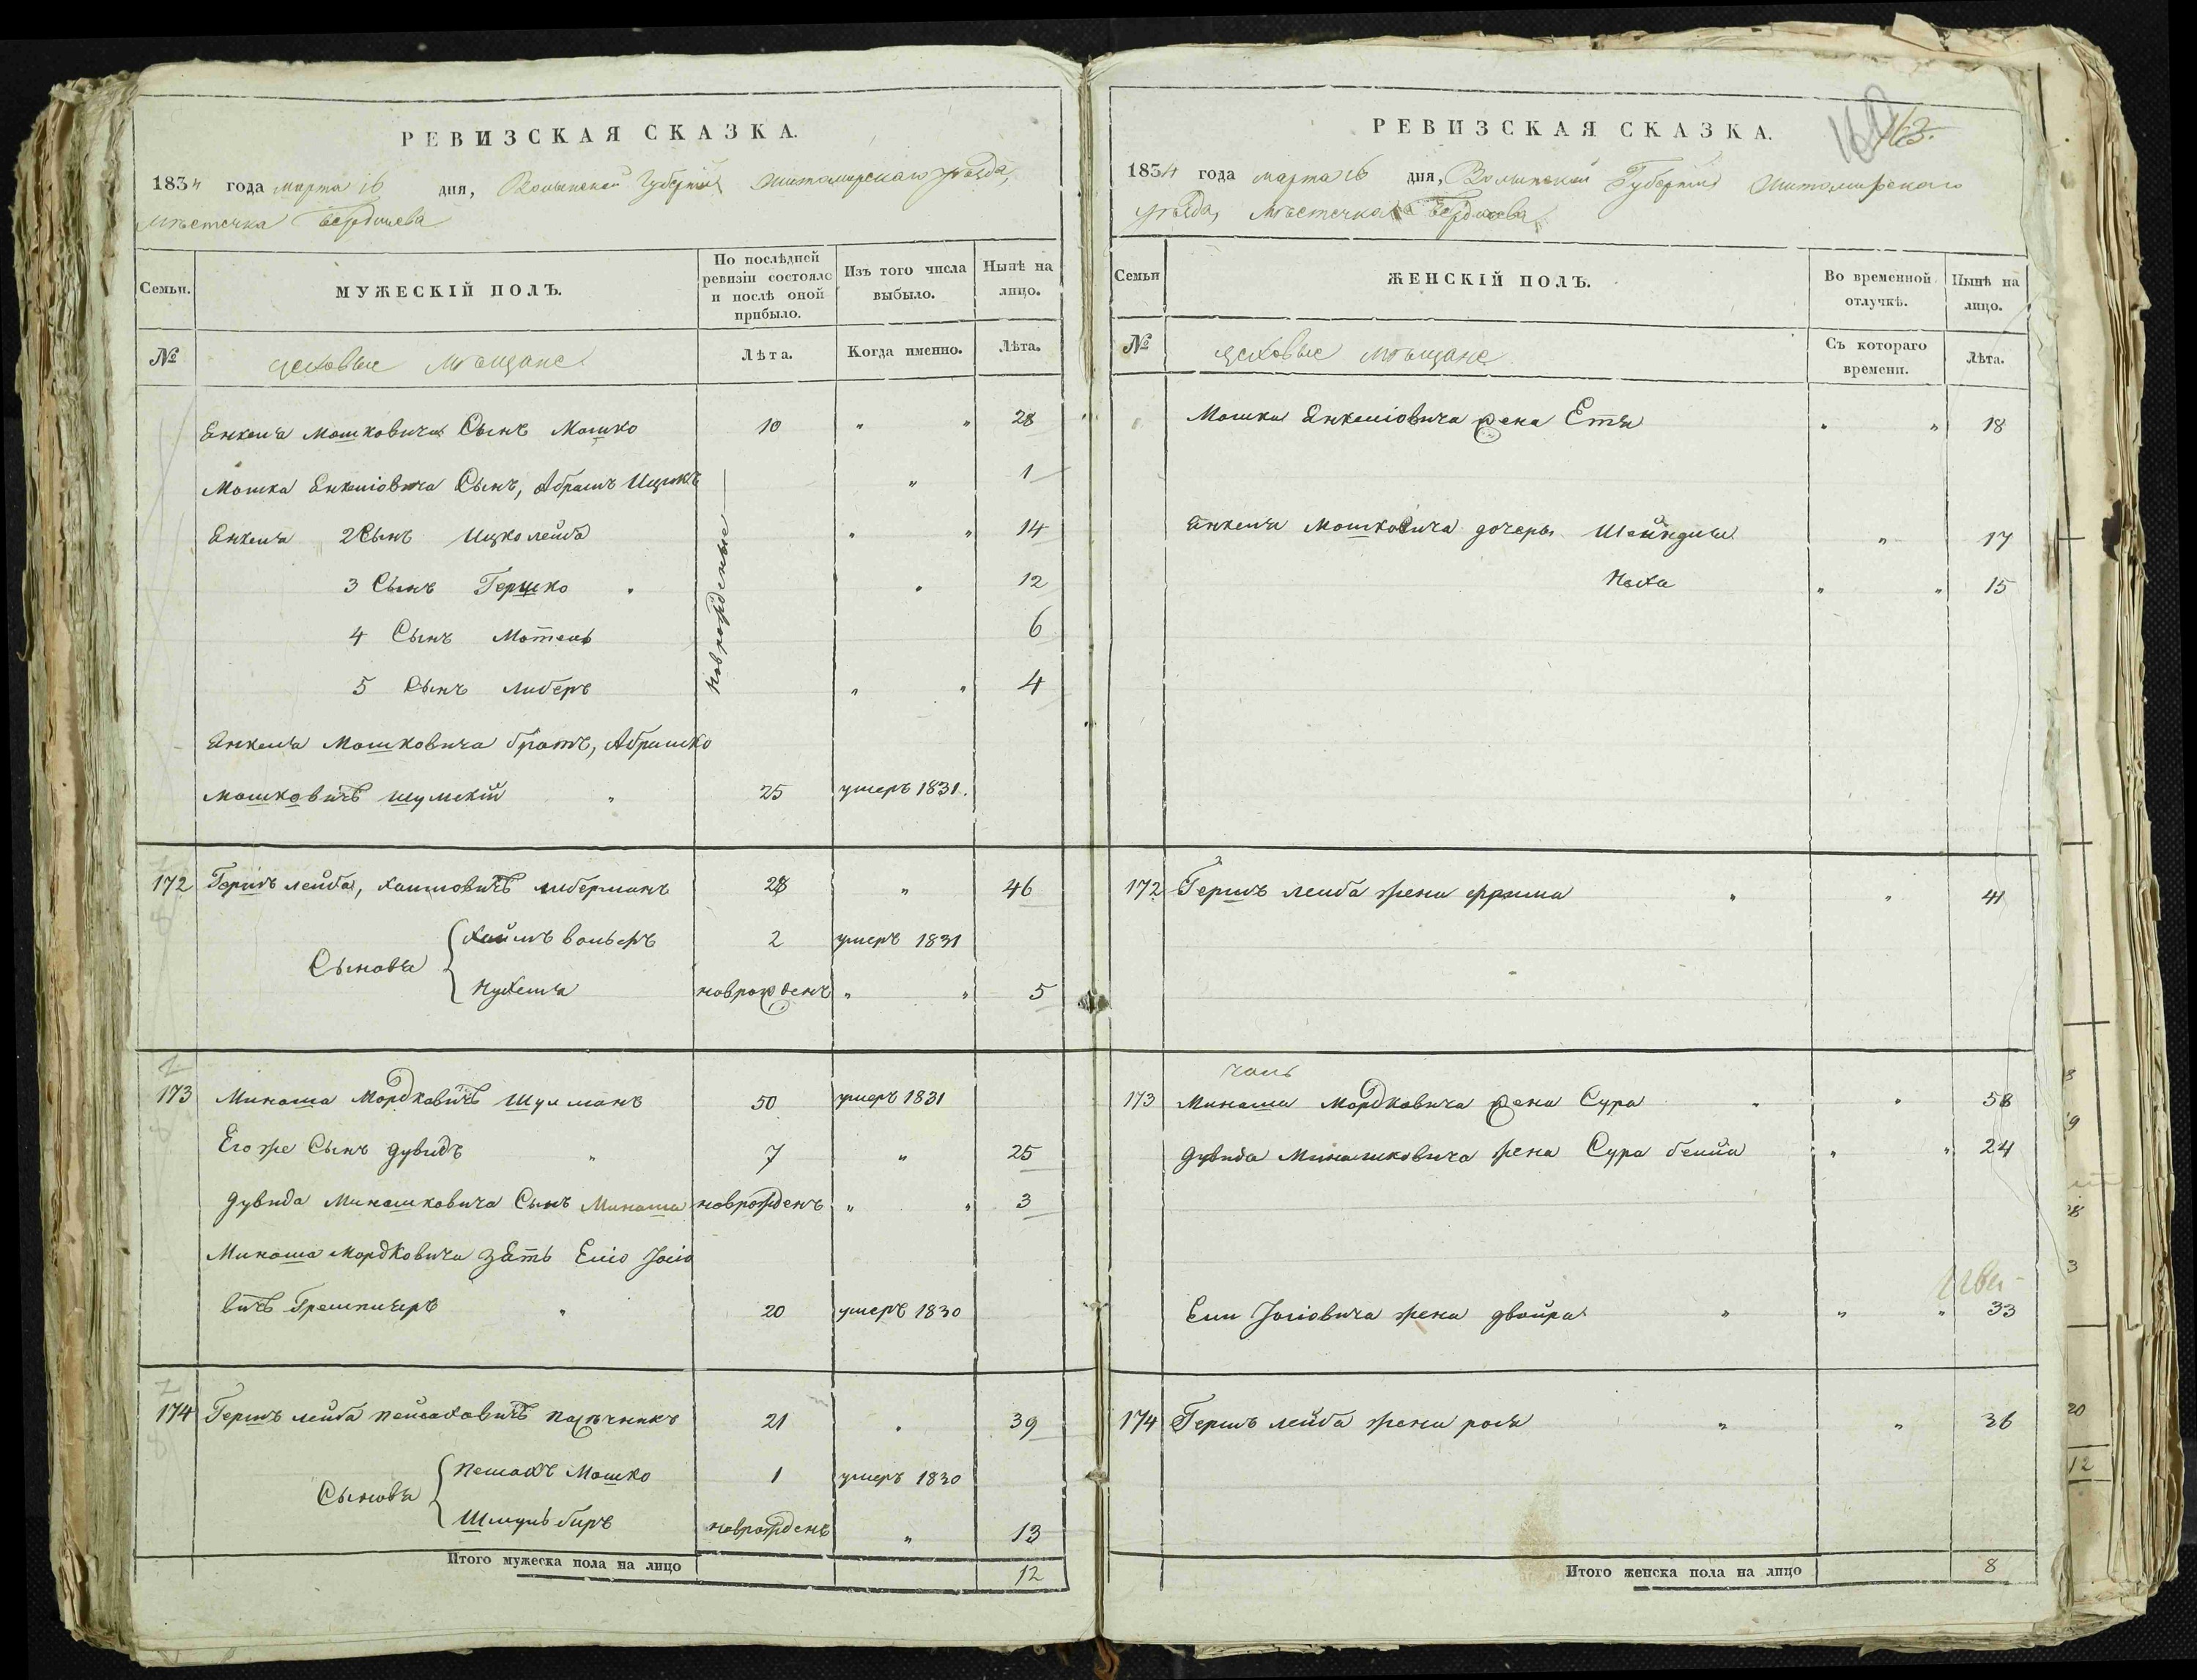 РЕВИЗСКАЯ СКАЗКА.
1834 года марта 16 дня, Волынской Губерніи Житомирскаго уѣзда,
мѣстечка Бердичева
Семьи.
МУЖЕСКІЙ ПОЛЪ.
По послѣдней ревизіи состояло и послѣ оной прибыло.
Изъ того числа выбыло.
Нынѣ на лицо.
№
цеховые мѣщане
Лѣта.
Когда именно.
Лѣта.
Янкеля Мошковича Сынъ Мошко 10 " " 28
Мошка Янкеліовича Сынъ, Абрамъ Ицикъ " 1
новрожденные
Янкеля 2 Сынъ Ицко лейба " " 14
3 Сынъ Гершко " " 12
4 Сынъ Мотель 6
5 Сынъ Либеръ " " 4
Янкеля Мошковича братъ, Абрамко
Мошковичъ Шумскій " 25 умеръ 1831.
172 Гершъ лейба, Хаимовичъ либерманъ 28 " 46
Сыновья
Хаимъ вольфъ 2 умеръ 1831
Нухемъя новрожденъ " " 5
173 Минаша Мордковичъ Шулманъ 50 умеръ 1831
Его же Сынъ дувидъ " 7 " 25
дувида Минашковича Сынъ Минаша новрожденъ " " 3
Минаша Мордковича зять Еліо Іосіо
вичъ " 20 умеръ 1830
174 Гершъ лейба пейсаховичъ 21 " 39
Сыновья
Пейсахъ Мошко 1 умеръ 1830
Шмуль беръ новрожденъ " 13
Итого мужеска пола на лицо 12
РЕВИЗСКАЯ СКАЗКА.
163.
1834 года марта 16 дня, Волынской Губерніи Житомирскаго
уѣзда, мѣстечка Бердичева
Семьи
ЖЕНСКІЙ ПОЛЪ.
Во временной отлучкѣ.
Нынѣ на лицо.
№
цеховые мѣщане
Съ котораго времени.
Лѣта.
Мошка Янкеліовича жена Етя " " 18
Янкеля Мошковича дочеры Шейндля " 17
Ныха " " 15
172 Гершъ лейба жена фрима " " 41
173 Минаши Мордковича жена Сура " " 58
дувида Минашковича жена Сура бейла " " 24
Ели Іосіовича жена двойра " " " 33
174 Гершъ лейба жена рося " " 36
Итого женска пола на лицо 8